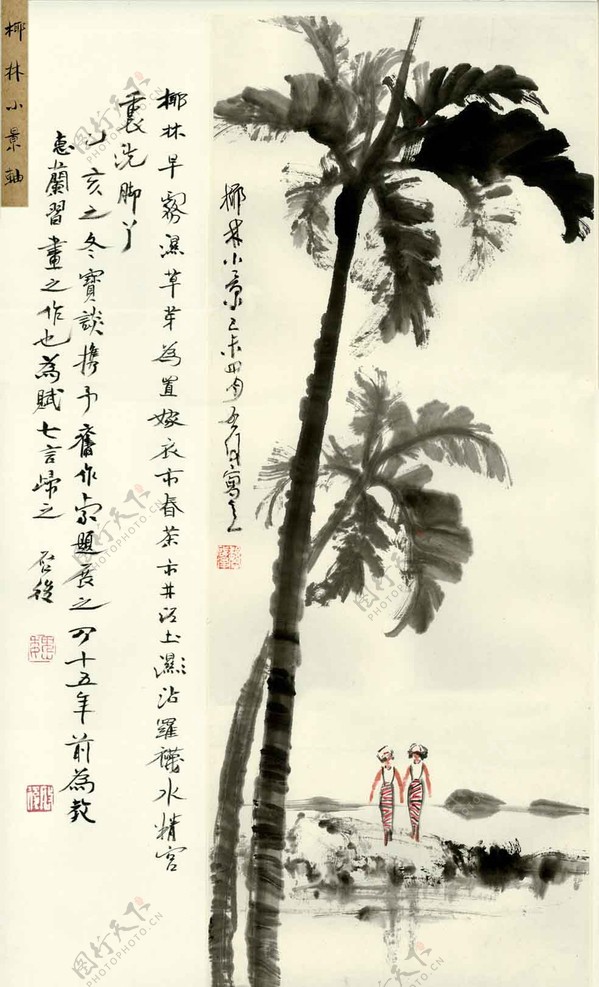 椰林小景己未四月寫之
椰林早霧濕草芽為置嫁衣市春茶市井土濕沾羅襪水精宮
裏洗脚丫
己亥之冬寶談携予舊作索題十五年前為教
惠蘭習畫之作也為賦七言歸之
椰林小景軸
图行天下
PHOTOPHOTO.CN